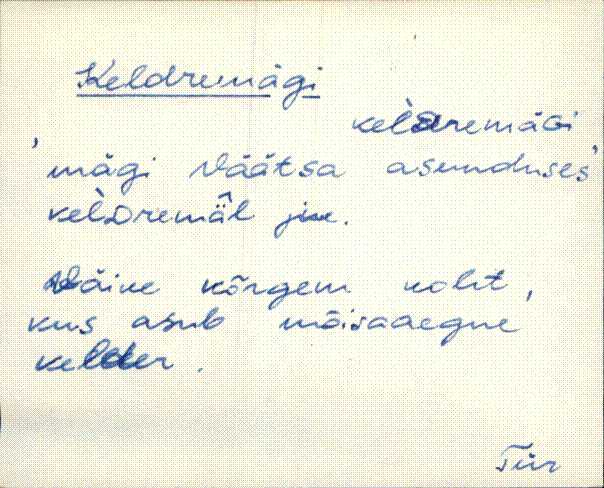 Keldremägi
kel̀dremäGi
'mägi Väätsa asunduses'
kel̀Dremä̂l jne.
Väike kõrgem koht,
kus asub mõisaaegne
kelder.
Tür